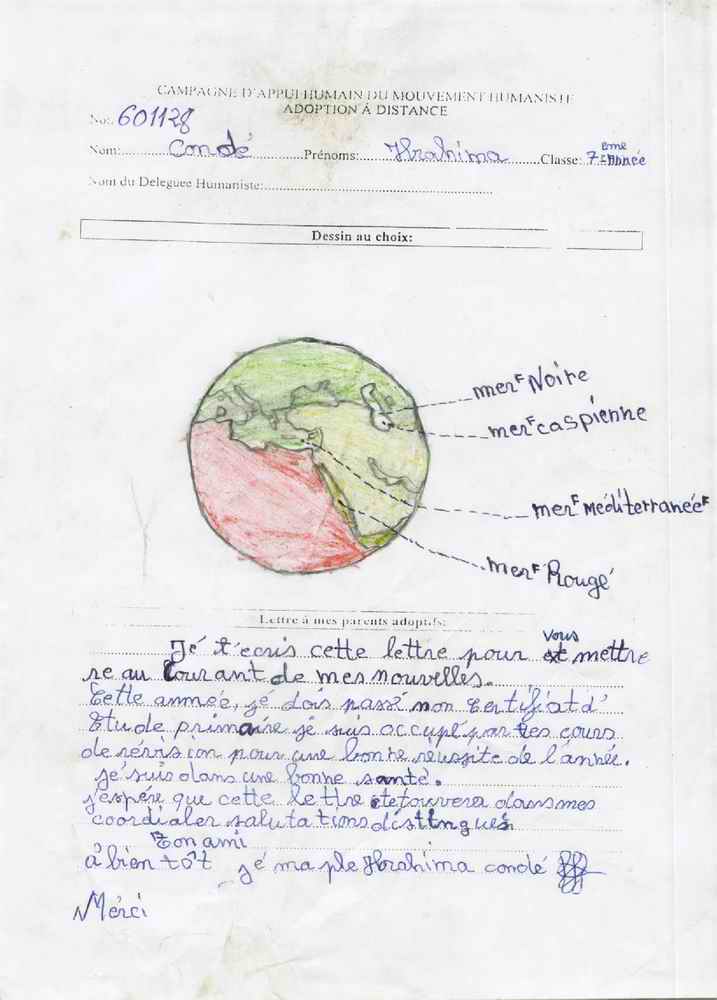 CAMPAGNE D'APPUI HUMAIN DU MOUVEMENT HUMANISTE
ADOPTION Á DISTANCE
No:. 601128
Nom:.......Condé.......Prénoms:....Ibrahima.....Classe: 7ème Année
Nom du Deleguee Humaniste:
Dessin au choix:
mer Noire
mer caspienne
mer méditerraneé
mer Rougé
Lettre à mes parents adoptifs:
Jé t'ecris cette lettre pour vous mettre
re au Courant de mes nouvelles.
Cette année, jé dois passé mon Certifiat d'
Etude primaire jé suis occupé par les cours
de révis ion pour une bonne réussite de l'année.
jé suis dans une bonne santé.
j'espére que cette lettre te touvera dans mes
cordialer salutations distingués
Ton ami
á bien tôt jé ma ple Ibrahima condé
Merci